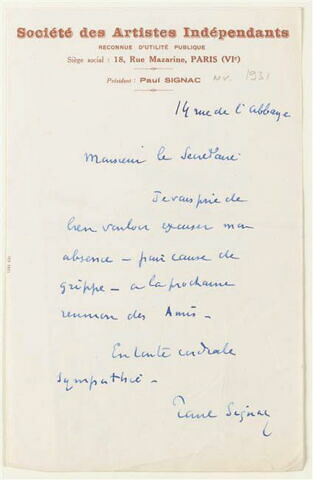 Société des Artistes Indépendants
RECONNUE D'UTILITÉ PUBLIQUE
Siège social : 18, Rue Mazarine, PARIS (VIe)
Président : Paul SIGNAC
1931
14 rue de l'abbaye
Monsieur le Secrétaire
Je vous prie de
bien vouloir excuser mon
absence – pour cause de
grippe – a la prochaine
reunion des Amis –
En toute cordiale
sympathie –
Paul Signac